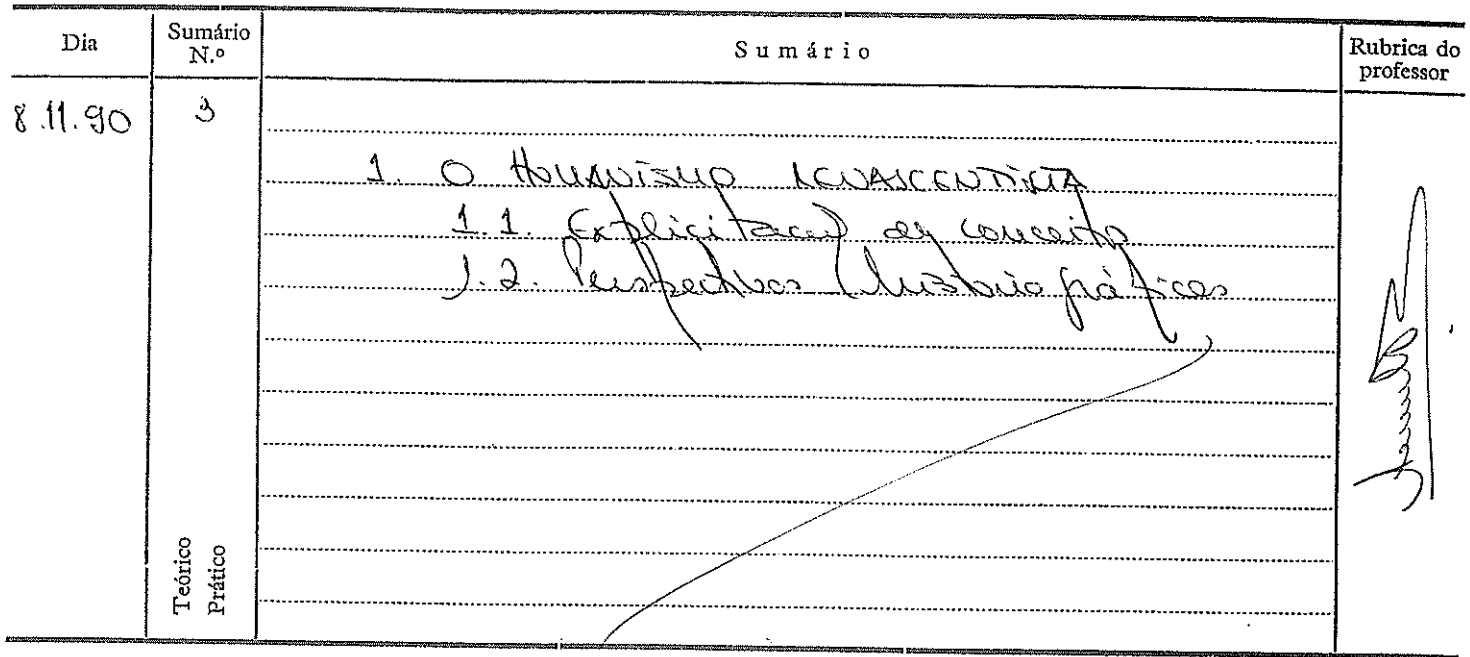 Dia
Sumário N.º
Sumário
Rubrica do professor
8.11.90
3
1. O HUMANISMO RENASCENTISTA
1.1. Explicitação do conceito
1.2. Perspectivas historiográficas
Teórico
Prático